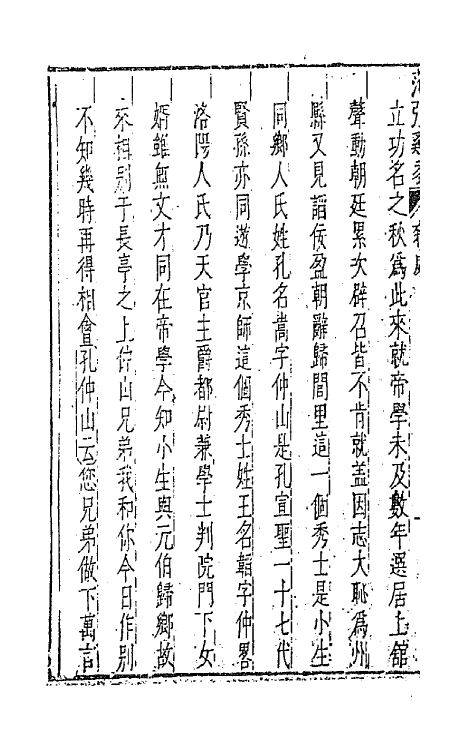 范張雞黍 雜劇
立功名之秋爲此來就帝學未及數年選居上舘
聲動朝廷累次辟召皆不肯就盖因志大恥爲州
縣又見謟佞盈朝辭歸閭里這一個秀士是小生
同鄉人氏姓孔名嵩字仲山是孔宣聖一十七代
賢孫亦同遊學京師這個秀士姓王名韜字仲畧
洛陽人氏乃天官主爵都尉兼學士判院門下女
婿雖無文才同在帝學今知小生與元伯歸鄉故
來相別于長亭之上仲山兄弟我和你今日作別
不知幾時再得相會孔仲山云您兄弟做下萬言